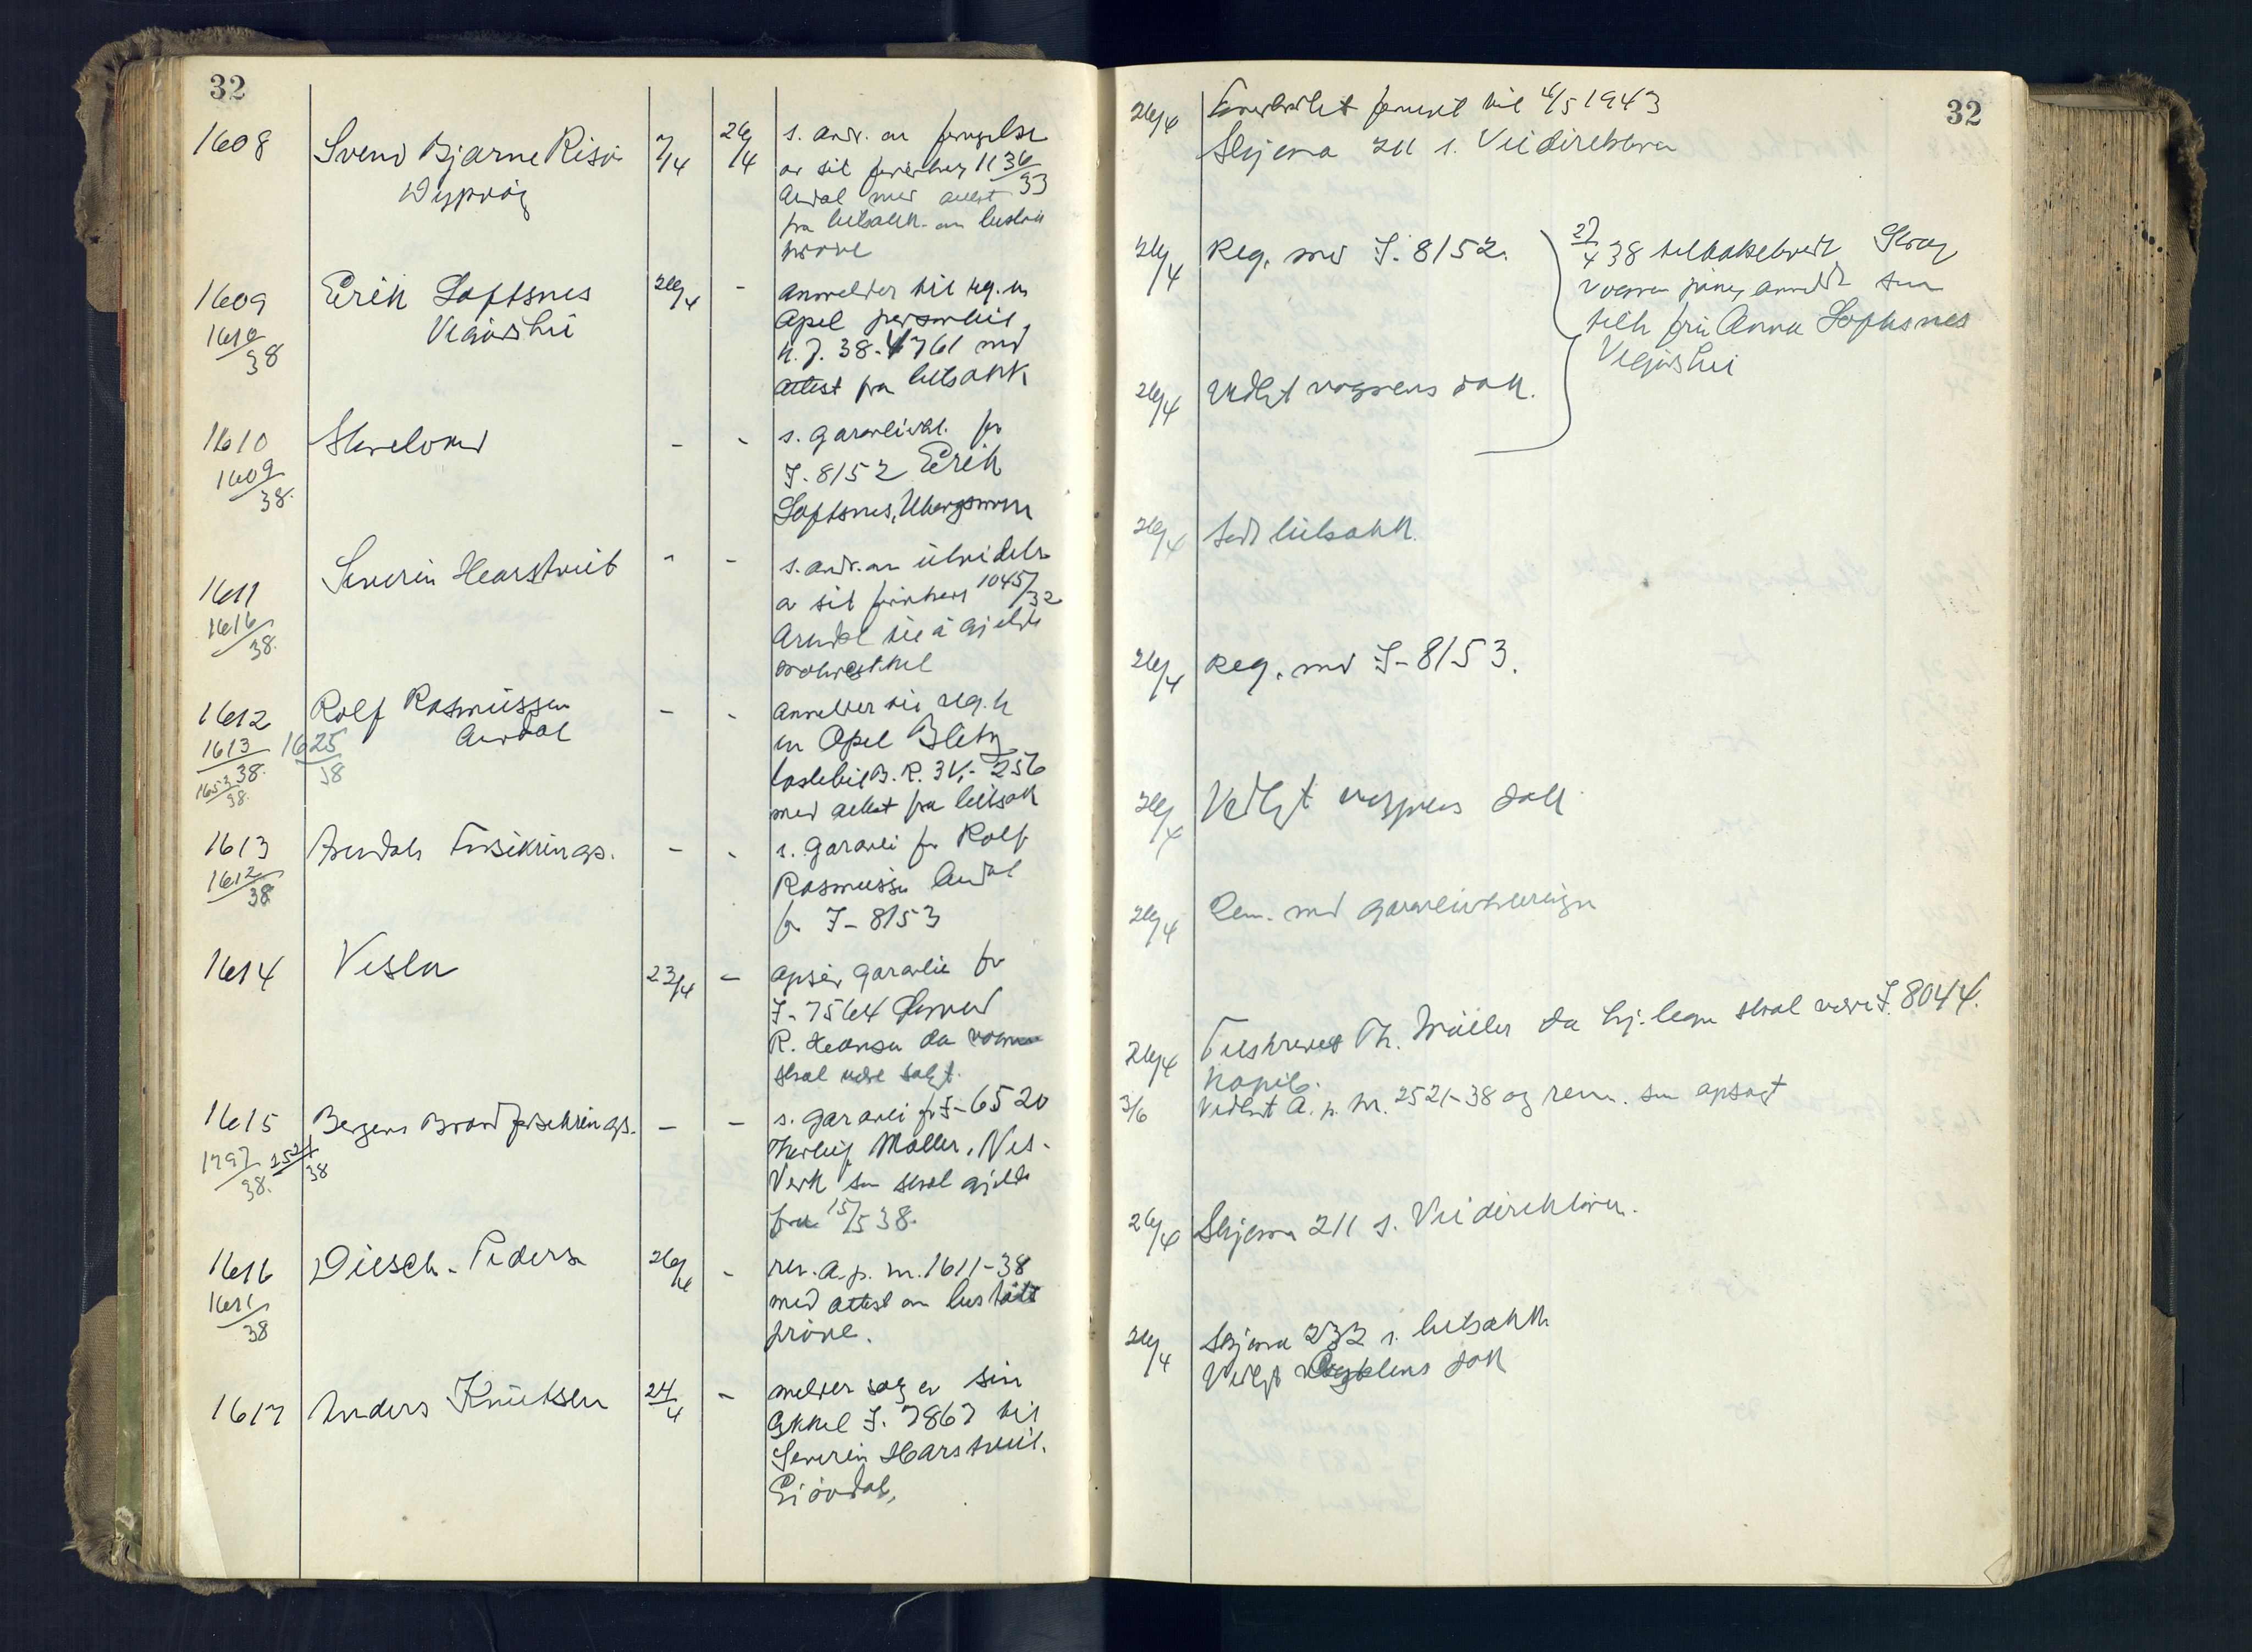 32
1608
Svend Bjarne Risø
Dypvåg
7/4
26/4
s. ands. om fornyelse
av sit førerbev 1136/33
Arndal med attest
fra bilsakk. om bestått
prøve
1609
1610/38
Erik Loftsnes
Vegårshei
26/4
-
anmelder til reg. en
Opel personbil,
K.J. 38-4761 med
attest fra bilsakk
1610
1609/38.
Skreland
-
-
s. garantierkl. for
I-8152 Erik
Loftsnes,
1611
1616/38.
Severin Hearstveit
-
-
s. ands. om utvidelse
av sit førerbevis 1045/32
Arendal til å gjelde
motorcykkel
1612
1613/38.
1625/38
1653/38.
Rolf Rasmussen
Arndal
-
-
anmelder til reg.
en Opel Blitz
lastebil B.R. 3 V.- 256
med attest fra bilsak
1613
1612/38
Arendals Forsikrings.
-
-
s. garanti for Rolf
Rasmussen Arndal
for I-8153
1614
Vesta
23/4
-
opsier garantie for
I-7564
R. Hansen da vognen
skal være solgt.
1615
1797/38.
2521/38
Bergens Brandforsikrings.
-
-
s. garanti for I-6520
Thorleif Møller, Nes-
Verk som skal gjelde
fra 15/5 38.
1616
1611/38
Diesch-Peders
26/4
-
rem. a.p. nr. 1611-38
med attest om bestått
prøve.
1617
Anders Knutsen
24/4
-
melder salg av sin
cykkel I. 7867 til
Severin Harstveit.
32
26/4
Førerkortet fornyet til 4/5 1943
Skjema 211 s. Veidirektøren
26/4
Reg. med I. 8152.
27/4 38 tilbakelevert
vognen påny anmeldt som
tilh. fru Anna Loftsnes
Vegårshei
26/4
Vedlagt vognens dok.
26/4
Sendt bilsakk.
26/4
Reg. med I-8153.
26/4
Vedlagt vognens dok
26/4
Rem. med garantierklæringen
26/4
Tilskrevet Th. Møller da kj. legn skal være I. 8044.
Kopib.
3/6
Vedlagt a. p. nr. 2521-38 og rem. som opsagt
26/4
Skjema 211 s. Veidirektøren.
26/4
Skjema 232 s. bilsakk.
Vedlagt cykkelens dok